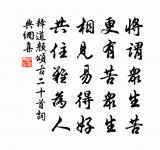 將謂衆生苦
更有苦衆生
相見易得好
共住難為人
釋道顏頌古二十首詞
典網集